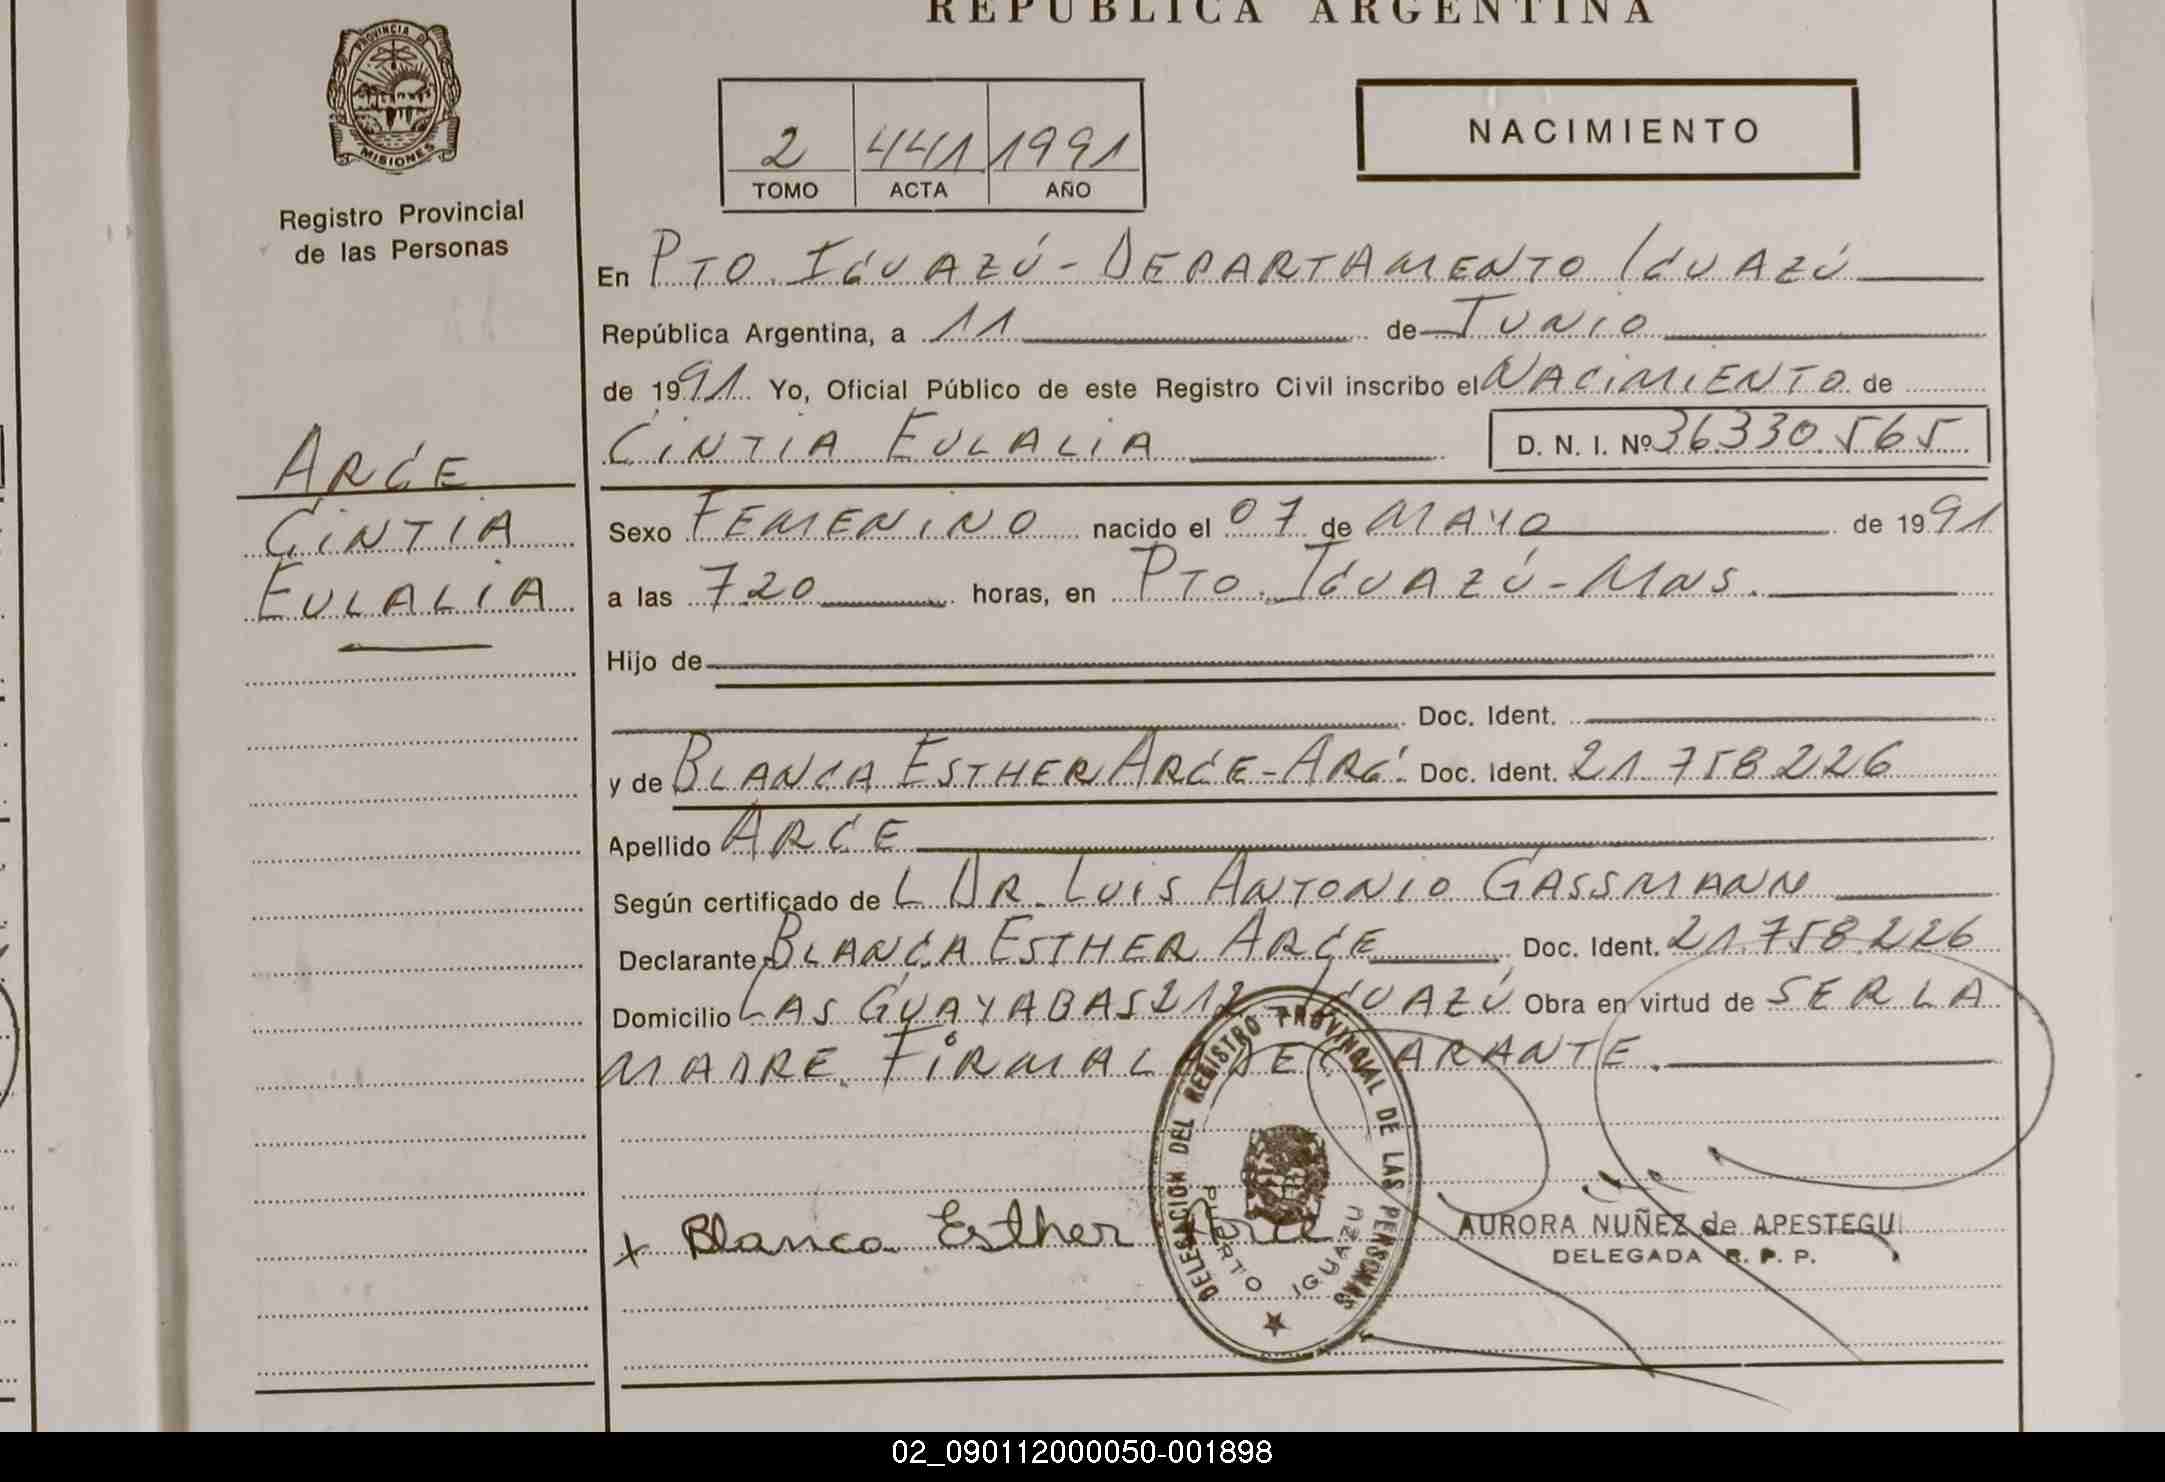 REPUBLICA ARGENTINA
PROVINCIA D
MISIONES
Registro Provincial
de las Personas
2 441 1991
TOMO ACTA AÑO
NACIMIENTO
En PTO. IGUAZÚ - DEPARTAMENTO IGUAZÚ
República Argentina, a 11 de JUNIO
de 1991. Yo, Oficial Público de este Registro Civil inscribo el NACIMIENTO de
CINTIA EULALIA D. N. I. Nº 36330565
ARCE
CINTIA
EULALIA
Sexo FEMENINO nacido el 07 de MAYO de 1991
a las 7.20 horas, en PTO. IGUAZÚ - MNS.
Hijo de
Doc. Ident.
y de BLANCA ESTHER ARCE - ARG. Doc. Ident. 21.758.226
Apellido ARCE
Según certificado de L DR. LUIS ANTONIO GASSMANN
Declarante BLANCA ESTHER ARCE Doc. Ident. 21.758.226
Domicilio LAS GUAYABAS 212 - IGUAZÚ Obra en virtud de SER LA
MADRE. FIRMA LA DECLARANTE.
x Blanca Esther Arce
DELEGACION DEL REGISTRO PROVINCIAL DE LAS PERSONAS
PUERTO IGUAZU
AURORA NUÑEZ de APESTEGUI
DELEGADA R. P. P.
02_090112000050-001898